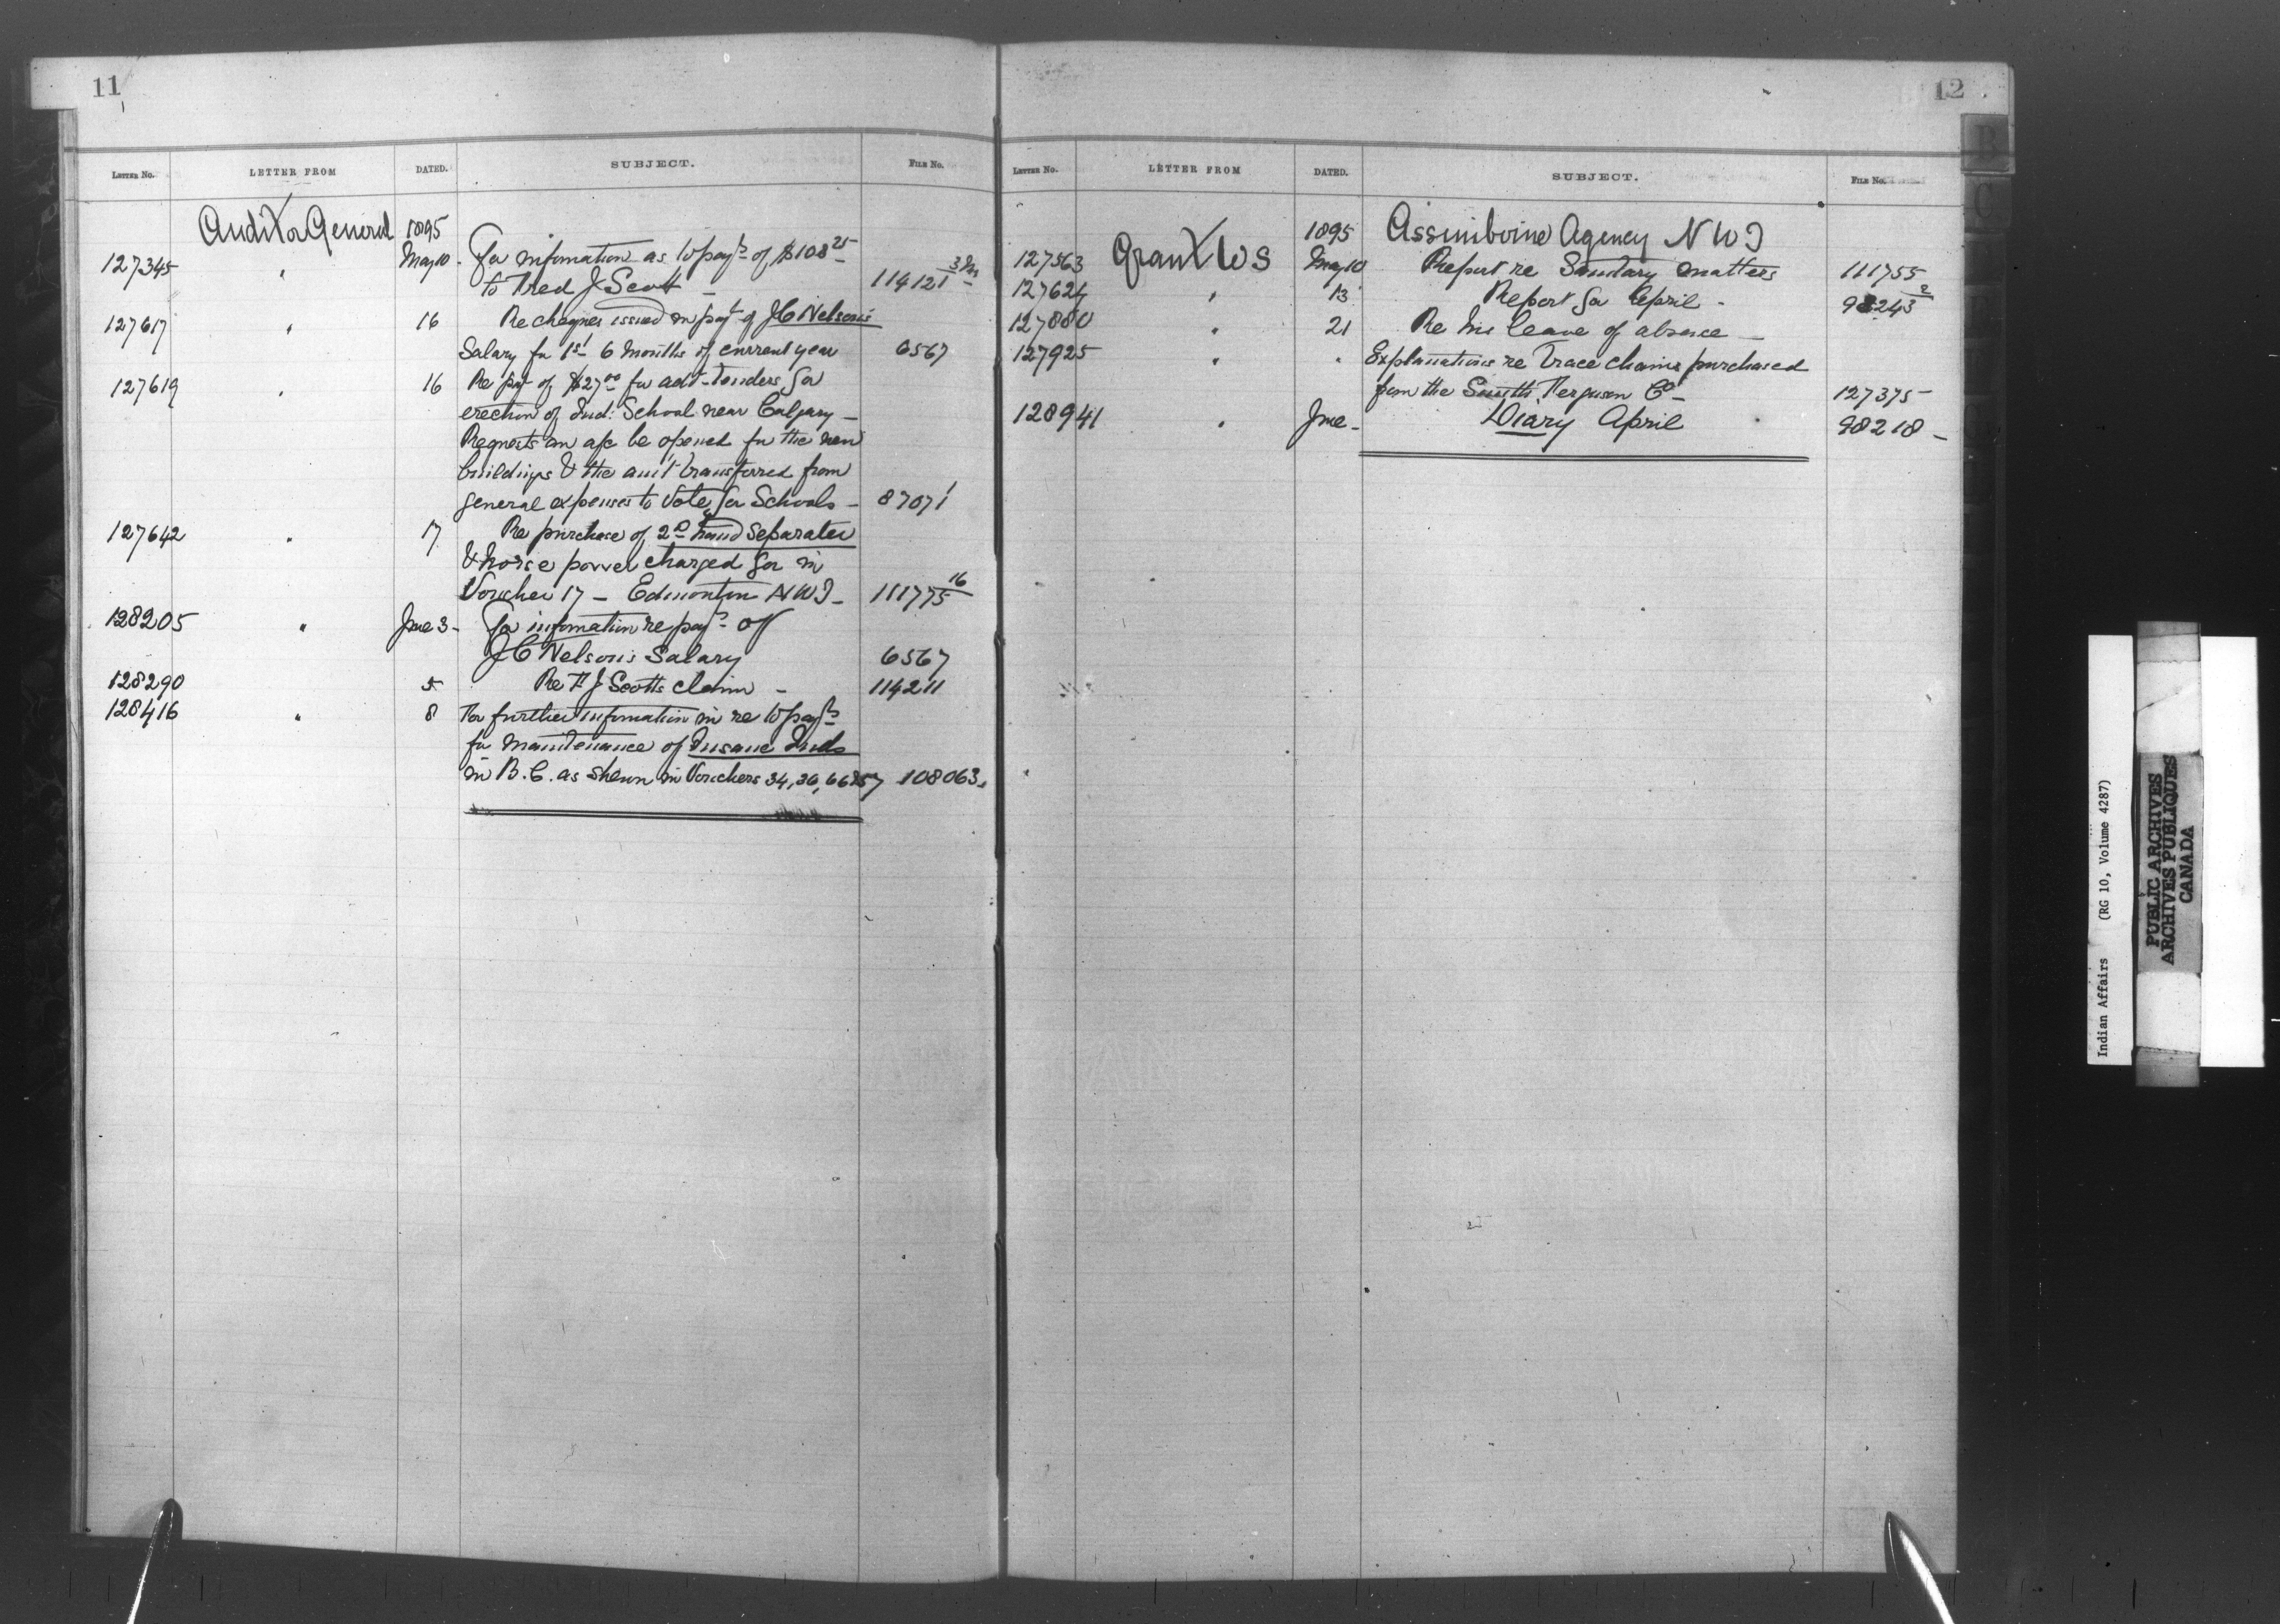 11
LETTER NO. LETTER FROM DATED. SUBJECT. FILE NO.
Auditor General 1895
127345 " May 10 - For infomation as to payt of $108 25
to Fred J Scott - 114121
127617 " 16 Re cheques issued in payt of J C Nelson's
Salary for 1st 6 months of current year 6567
127619 " 16 Re pay of $27 00 for advt tenders for
erection of Ind: School near Calgary -
Requests an a/c be opened for the new
buildings & the amt transferred from
general expenses to Vote for Schools - 87071 1
127642 " 17 Re purchase of 2D hand Separator
& horse power charged for in
Voucher 17 - Edmonton NWT - 111775 16
128205 " June 3 - For infomation re payt of
J C Nelson's Salary 6567
128290 5 Re F J Scotts claim - 114211
128416 " 8 For further infomation in re to payts
for maintenance of Insane Inds
in B.C. as shewn in Vouchers 34, 36, 108063
12
LETTER NO. LETTER FROM DATED. SUBJECT. FILE NO.
1895 Assiniboine Agency NWT
127563 Grant WS May 10 Report re Sanitary matters 111755
127624 " 13 Report for April - 98243 2
127880 " 21 Re his leave of absence -
127925 " " Explanations re trace chains purchased
from the Smith Ferguson Co - 127375
128941 " June - Diary April 98218 -
B
C
Indian Affairs (RG 10, Volume 4287)
PUBLIC ARCHIVES
ARCHIVES PUBLIQUES
CANADA